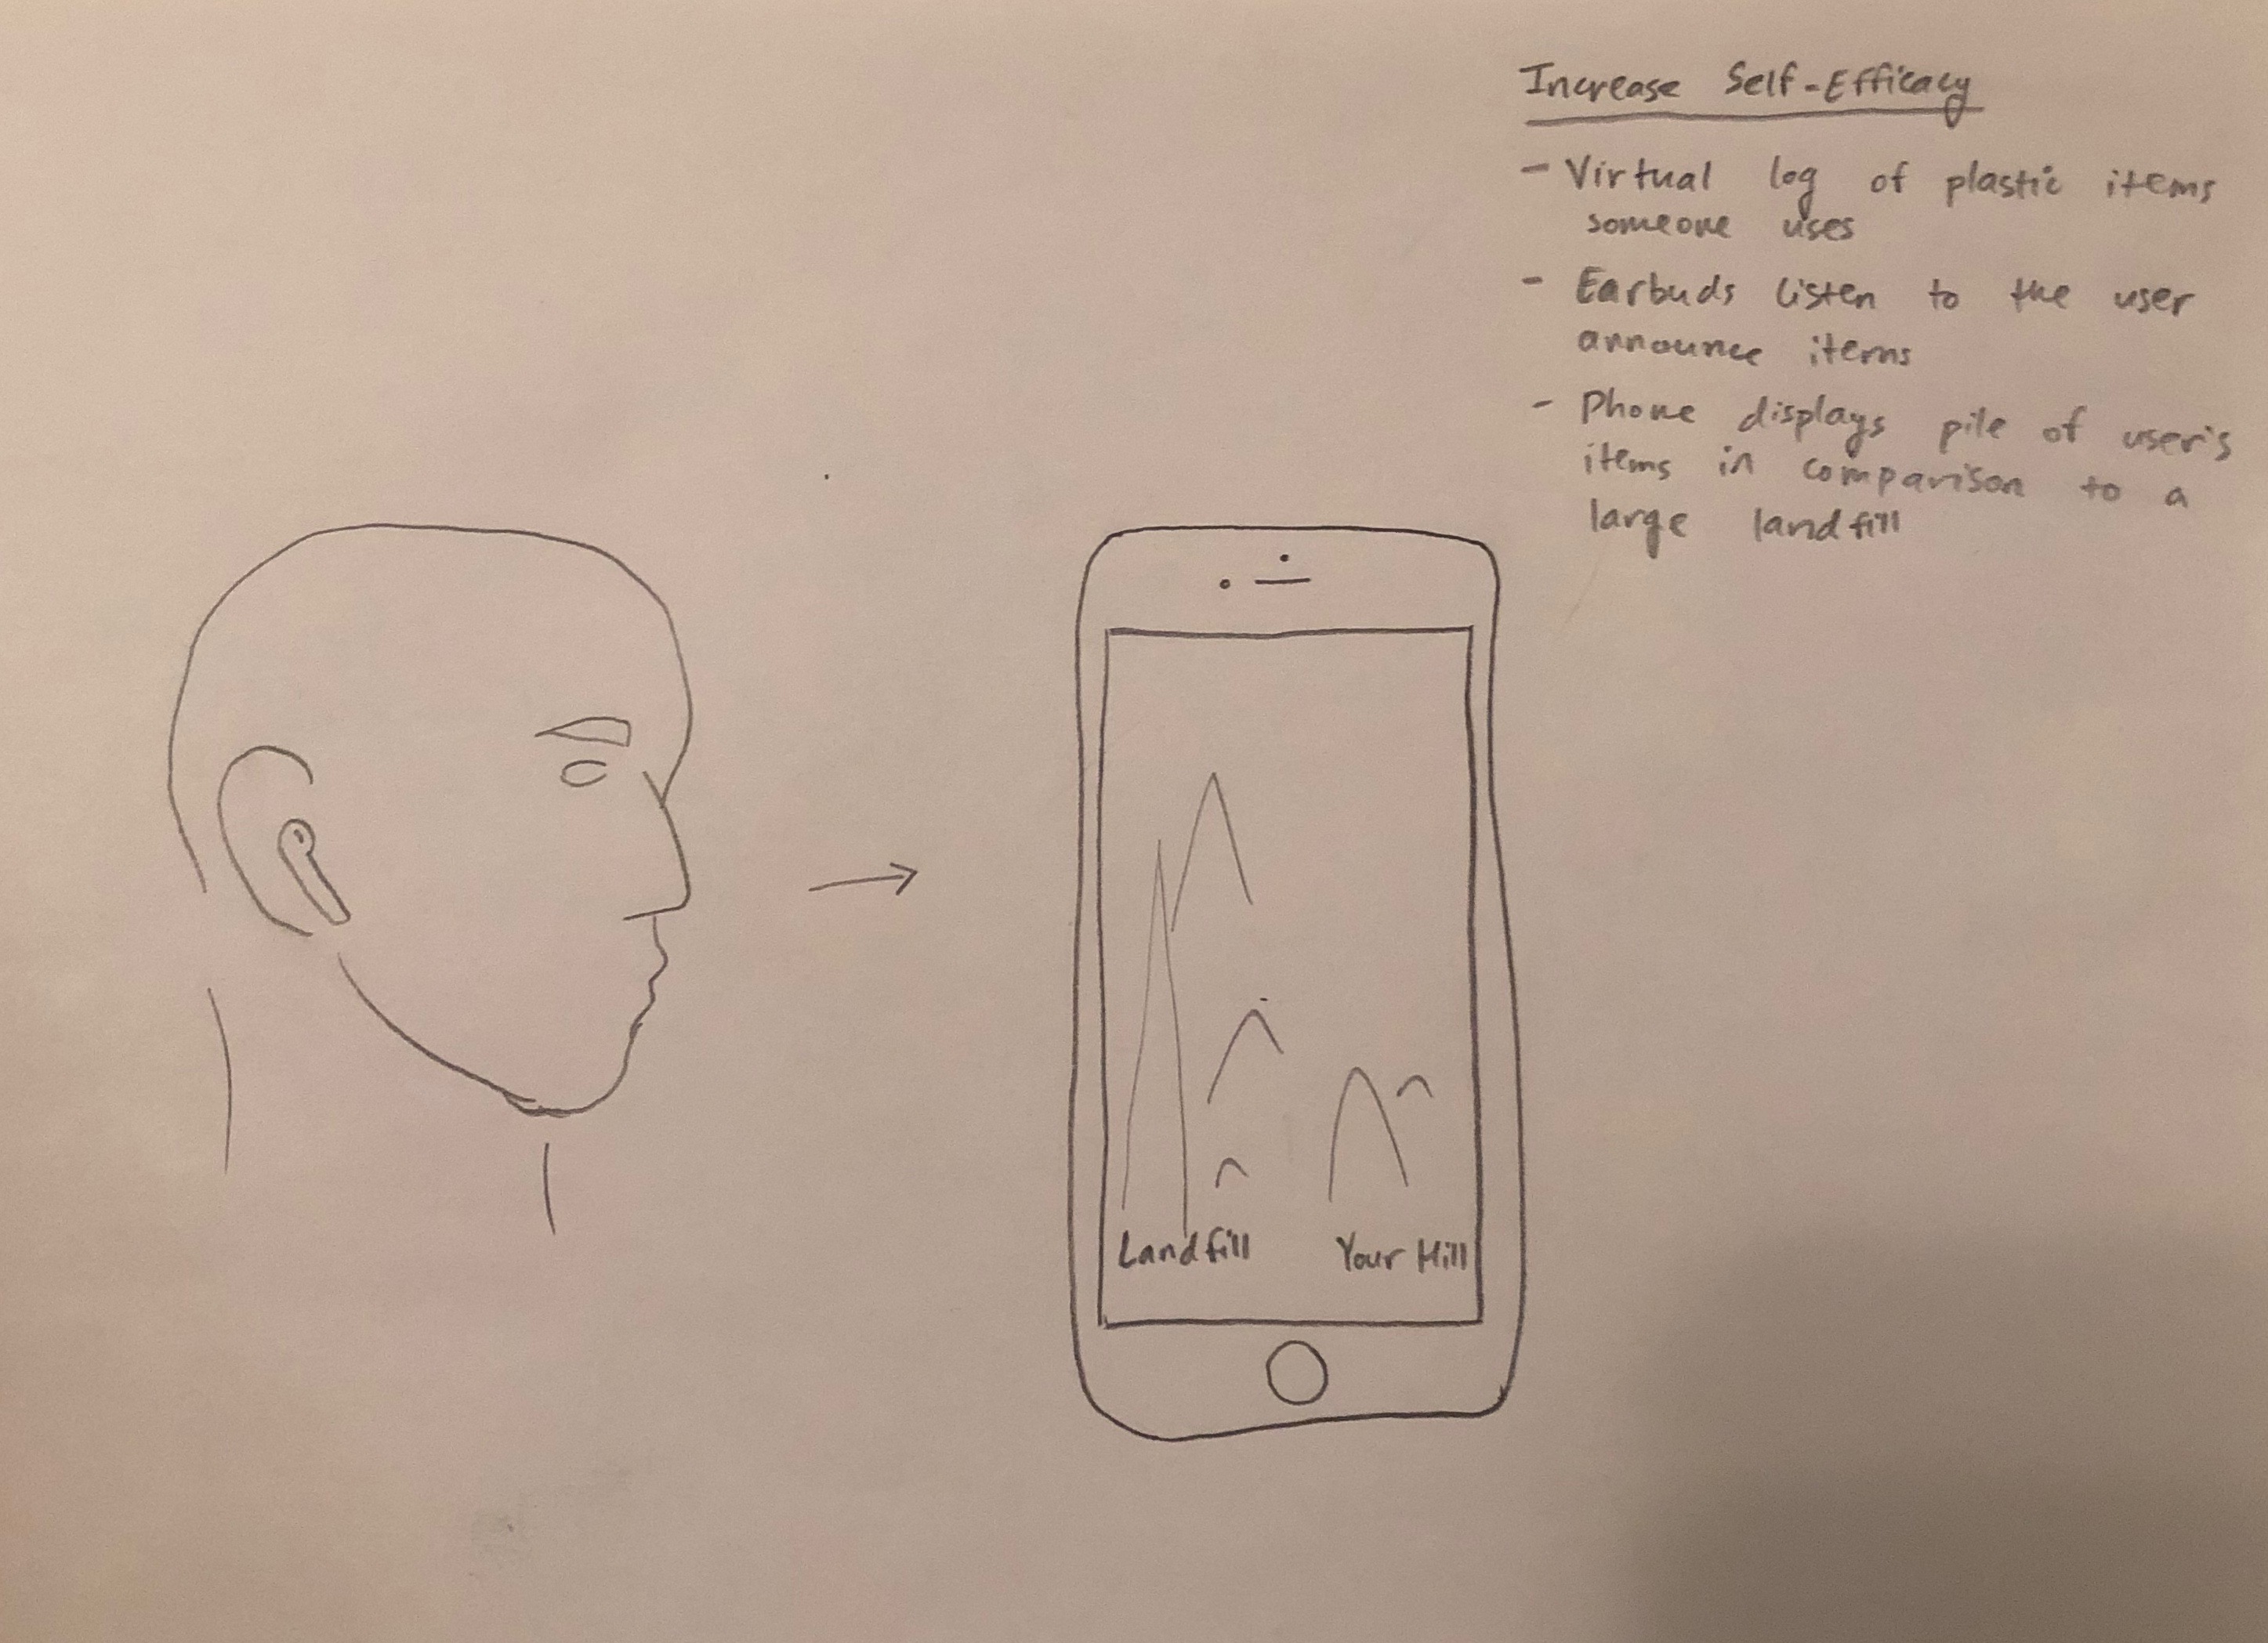 Increase Self-Efficacy
- Virtual log of plastic items
someone uses
- Earbuds listen to the user
announce items
- Phone displays pile of user's
items in comparison to a
large landfill
Landfill
Your Hill